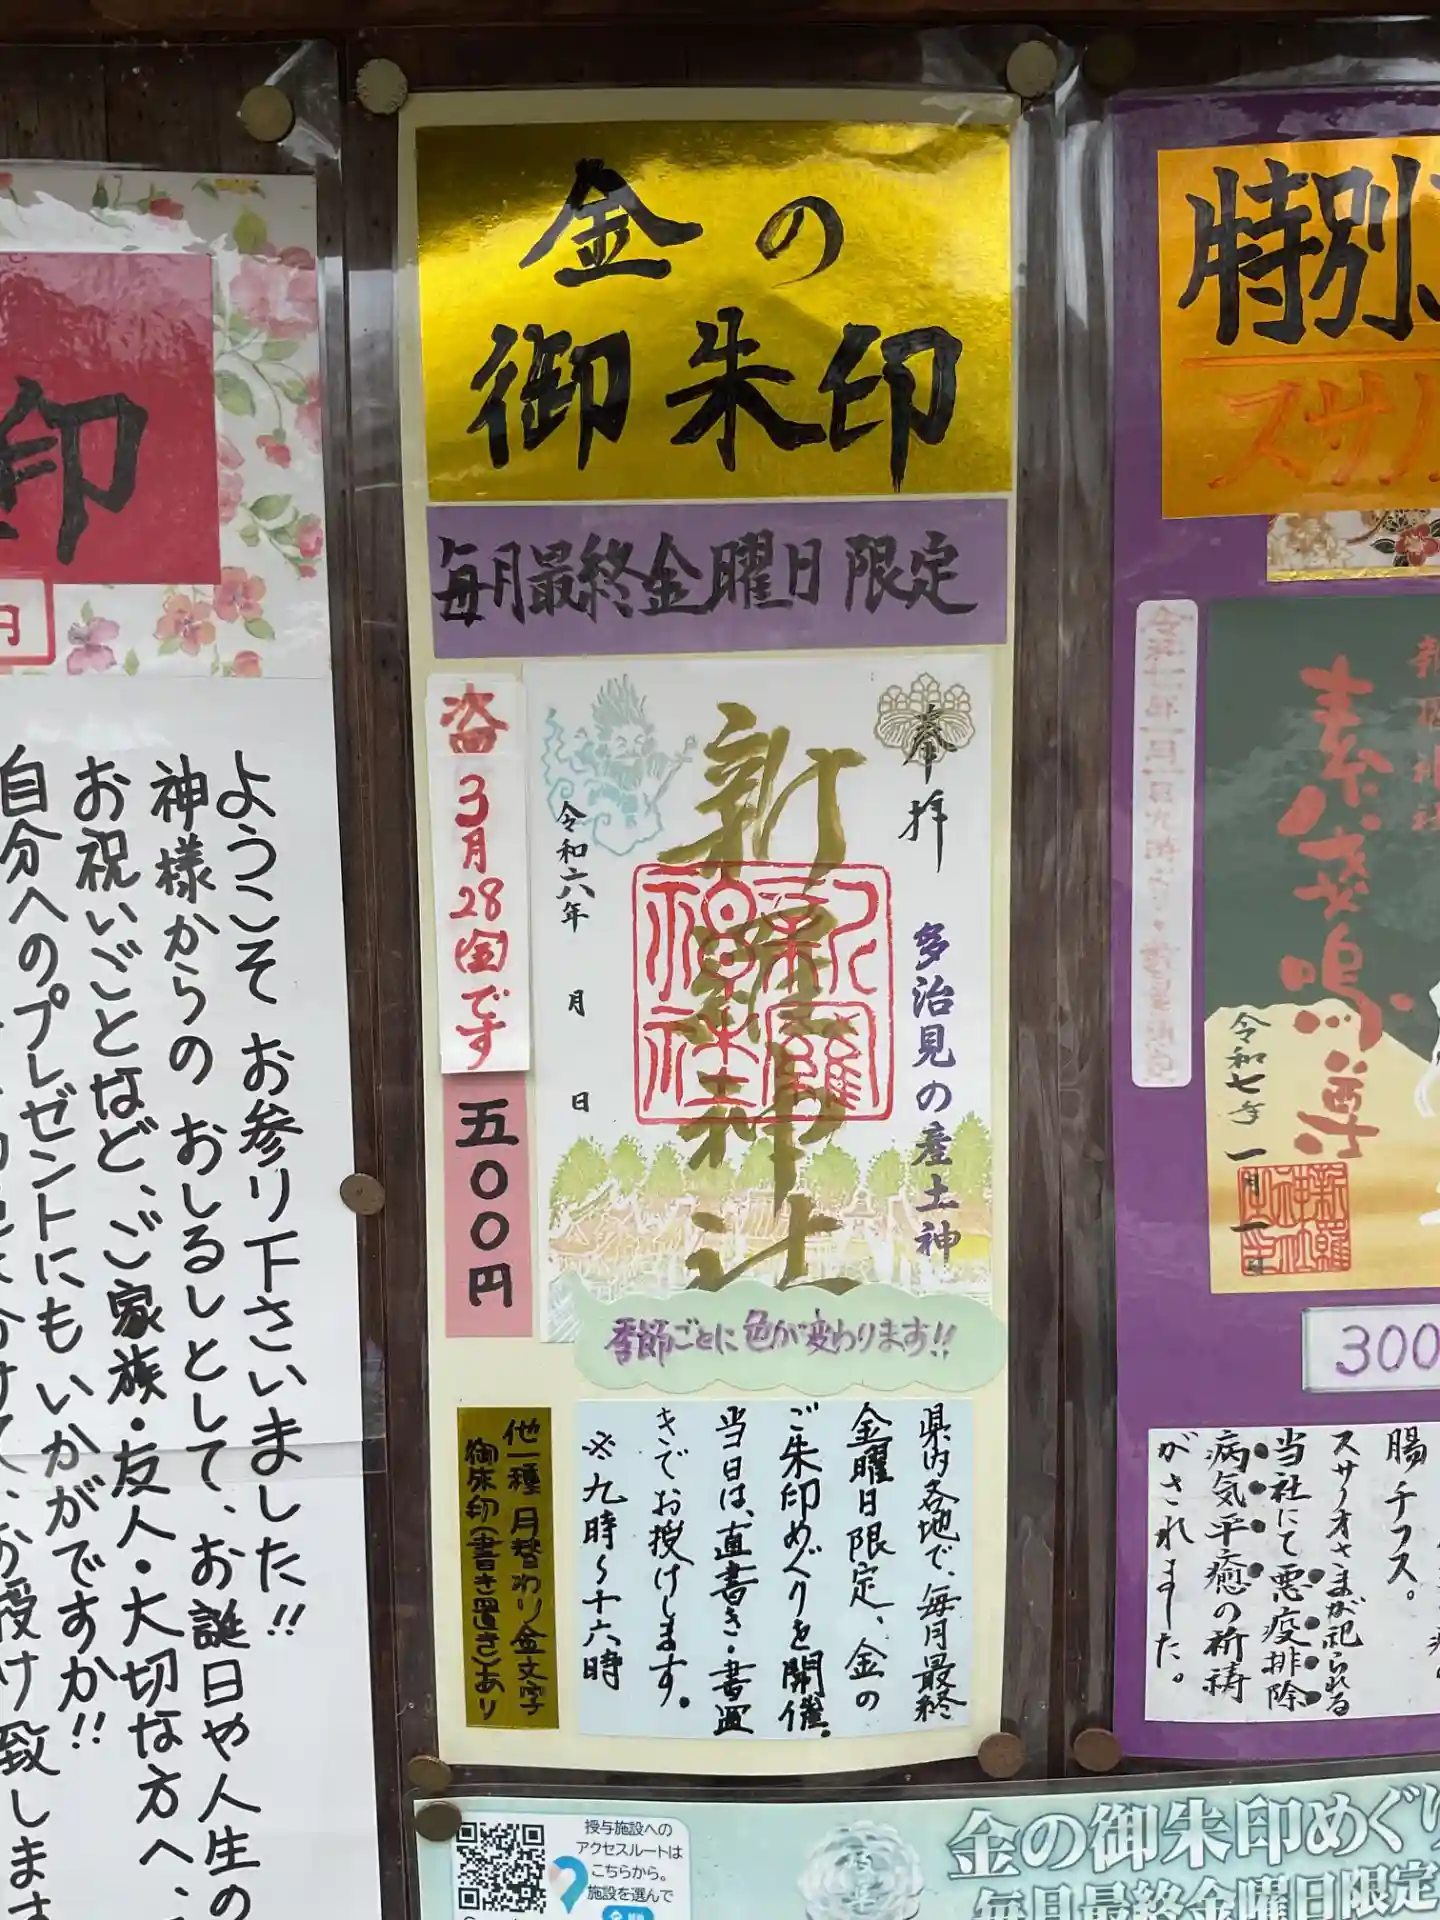 金の
御朱印
毎月最終金曜日限定
次回
3月28(金)です
五〇〇円
奉拝
多治見の産土神
新羅神社
新羅神社
令和六年 月 日
季節ごとに色が変わります!!
県内各地で、毎月最終
金曜日限定、金の
ご朱印めぐりを開催。
当日は、直書き・書置
きでお授けします。
※九時〜十六時
他一種 月替わり金文字
御朱印(書き置き)あり
印
円
ようこそ お参り下さいました!!
神様からの おしるしとして、お誕日や人生の
お祝いごとなど、ご家族・友人・大切な方へ、
自分へのプレゼントにもいかがですか!!
お授け致します
特別
スサノ
素戔嗚尊
令和七年一月一日
新羅神社
300
腸チフス。
スサノオさまが祀られる
当社にて悪疫排除
病気平癒の祈祷
がされました。
授与施設への
アクセスルートは
こちらから。
施設を選んで
金の御朱印めぐり
毎月最終金曜日限定